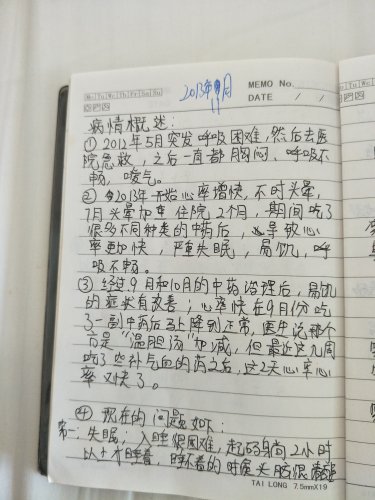 Mo Tu We Th Fr Sa Su
MEMO No.
DATE / /
2013年11月
病情概述：
① 2012年5月突发呼吸困难，然后去医
院急救，之后一直都胸闷、呼吸不
畅，嗳气。
② 2013年开始心率增快，不时头晕，
7月头晕加重住院2个月，期间吃了
很多不同种类的中药后，导致心
率更加快，严重失眠，易饥，呼
吸不畅。
③ 经过9月和10月的中药治理后，易饥
的症状有改善；心率快在9月份吃
了一副中药后马上降到正常，医生说那个
方是“温胆汤”加减，但最近这几周
吃了些补气血的药之后，这2天心率
又快了。
④ 现在的问题如下：
第一：失眠，入睡很困难，起码身向2小时
以上才睡着，睡不着的时候头脑很
TAI LONG 7.5mmX19